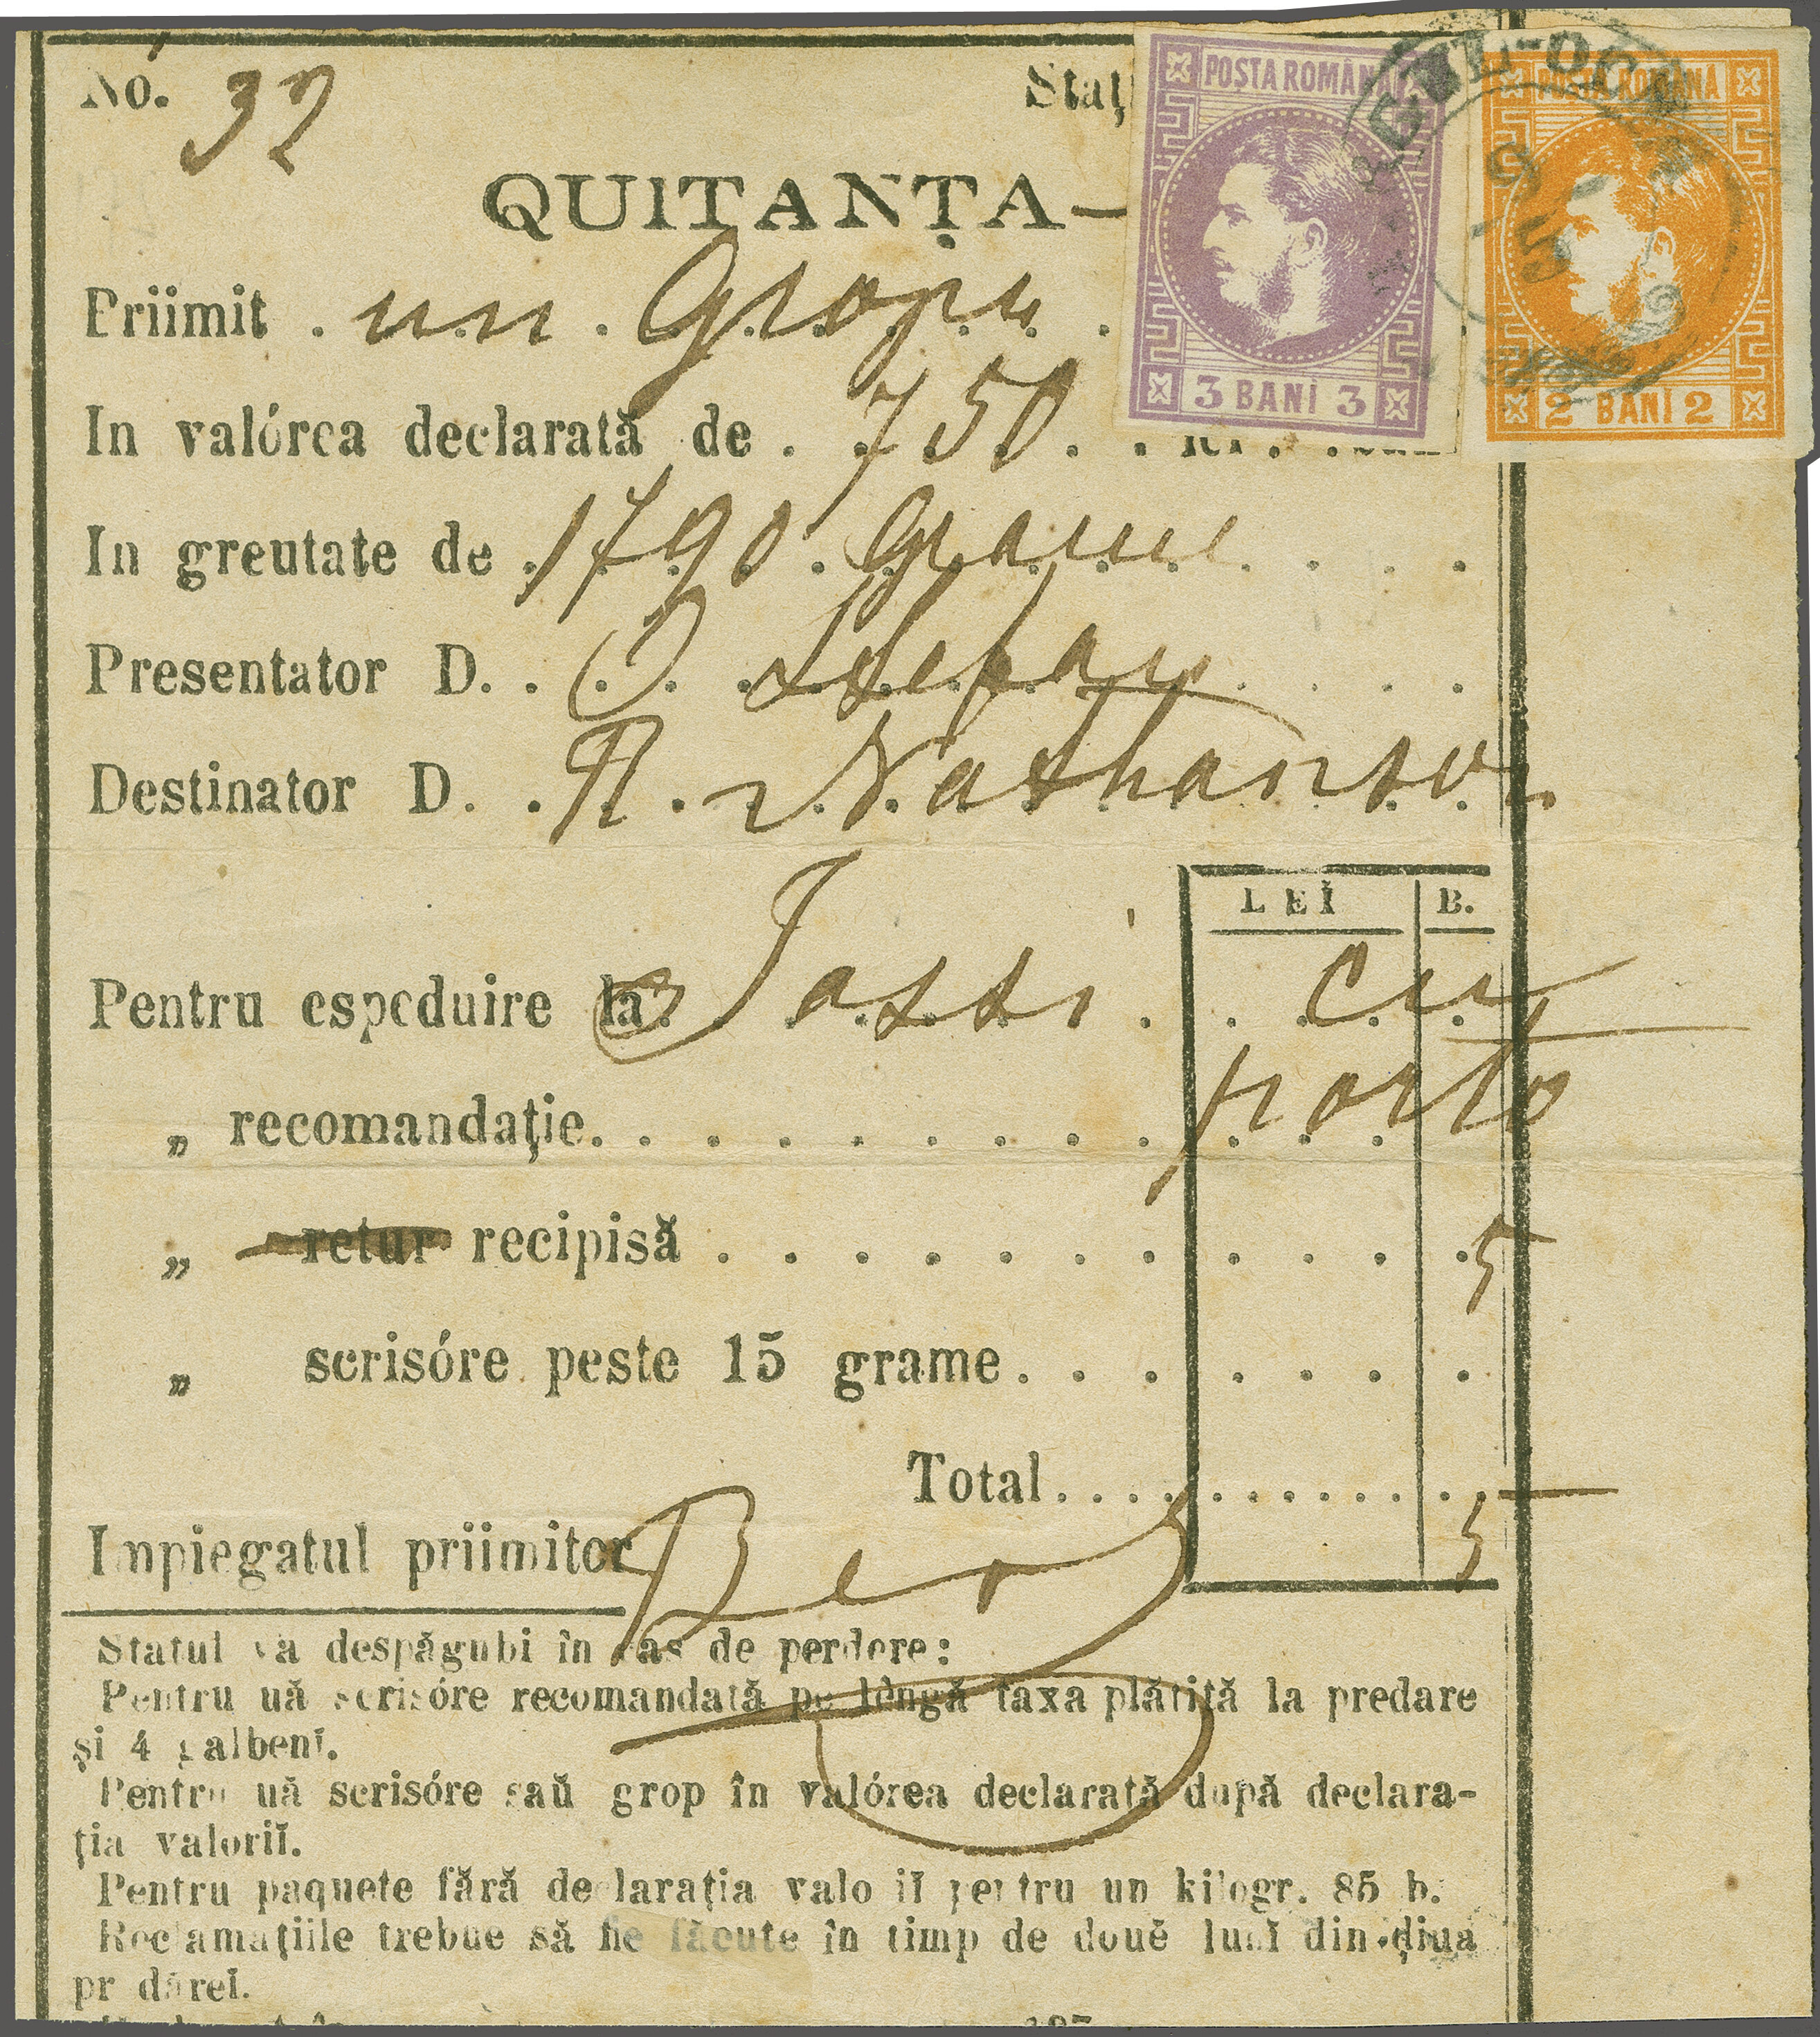 No. 32 Staț
POȘTA ROMÂNĂ
3 BANI 3
POȘTA ROMANA
2 BANI 2
9
5
QUITANȚA—
Priimit . un . Gropu
In valórea declarată de . 750 . . lei .
In greutate de . 1790 . Grame
Presentator D. . Stefan
Destinator D. . N. Nathanson
LEĬ B.
Pentru espeduire la Jassi cu
„ recomandație. porto
„ retur recipisă 5
„ scrisóre peste 15 grame
Total
Impiegatul priimitor 5
Statul va despăgubi în cas de perdere:
Pentru uă scrisóre recomandată pe lêngă taxa plătită la predare
și 4 galbenĭ.
Pentru uă scrisóre saŭ grop în valórea declarată după declara-
ția valoriĭ.
Pentru paquete fără declarația valo iĭ pentru un kilogr. 85 b.
Reclamațiile trebue să fie făcute în timp de douĕ lunĭ din ḑiua
pr dăreĭ.